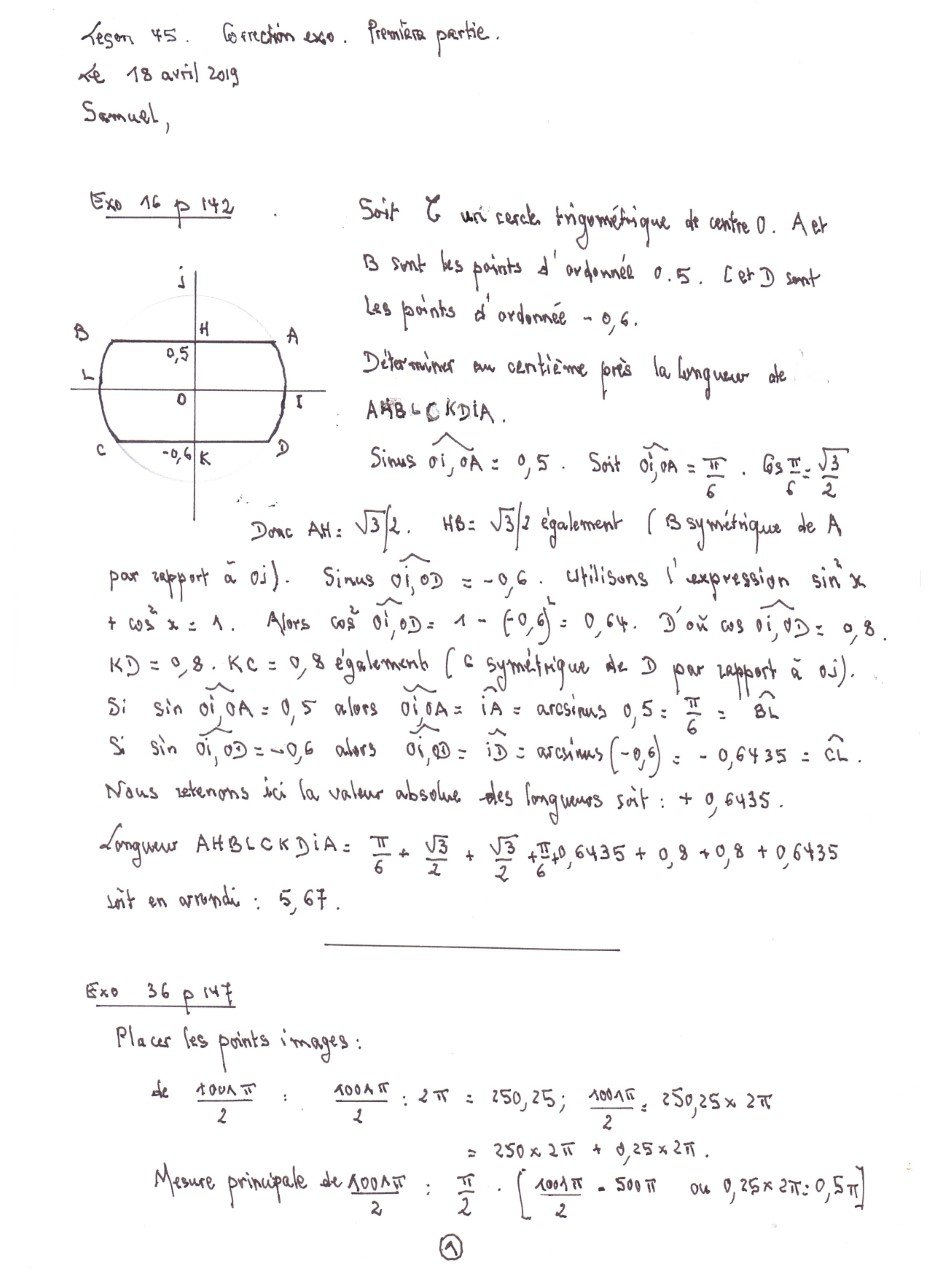 Leçon 45. Correction exo. Première partie.
Le 18 avril 2019
Samuel,
Exo 16 p 142.
Soit C un cercle trigométrique de centre O. A et
B sont les points d'ordonnée 0.5. C et D sont
Les points d'ordonnée -0,6.
Déterminer au centième près la longueur de
AHBLCKDIA.
j
B H A
0,5
L O I
C -0,6 K D
Sinus Oi,OA = 0,5. Soit Oi,OA = π/6. Cos π/6 = √3/2
Donc AH = √3/2. HB = √3/2 également (B symétrique de A
par rapport à Oj). Sinus Oi,OD = -0,6. Utilisons l'expression sin² x
+ cos² x = 1. Alors cos² Oi,OD = 1 - (-0,6)² = 0,64. D'où cos Oi,OD = 0,8.
KD = 0,8. KC = 0,8 également (C symétrique de D par rapport à Oj).
Si sin Oi,OA = 0,5 alors Oi,OA = iA = arcsinus 0,5 = π/6 = BL
Si sin Oi,OD = -0,6 alors Oi,OD = iD = arcsinus (-0,6) = -0,6435 = CL.
Nous retenons ici la valeur absolue des longueurs soit : + 0,6435.
Longueur AHBLCKDiA = π/6 + √3/2 + √3/2 + π/6 + 0,6435 + 0,8 + 0,8 + 0,6435
soit en arrondi : 5,67.
Exo 36 p 147
Placer les points images :
de 1001π/2 : 1001π/2 : 2π = 250,25; 1001π/2 = 250,25 × 2π
= 250 × 2π + 0,25 × 2π.
Mesure principale de 1001π/2 : π/2. [1001π/2 - 500π ou 0,25 × 2π = 0,5π]
1